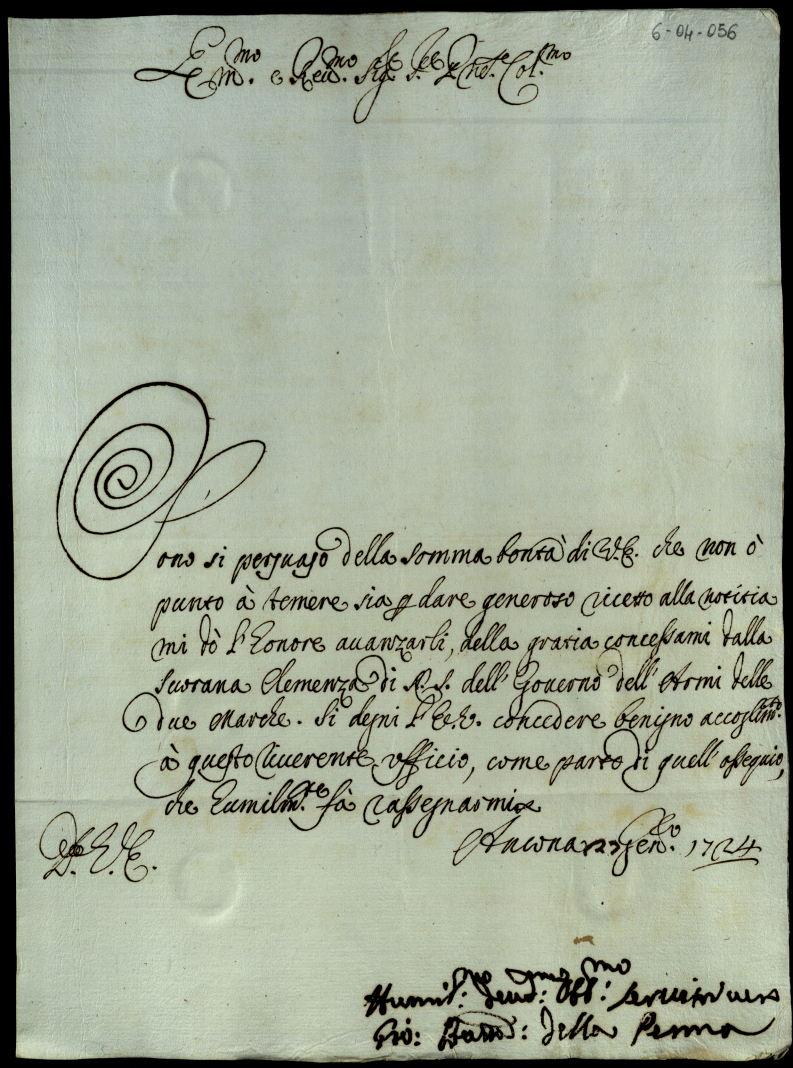 6-04-056
Em.mo e Reu.mo Sig.e P.ne Col.mo
Sono si persuaso della somma bontà di V.E. che non ò
punto à temere sia p dare generoso ricetto alla notitia
mi dò l'honore auanzarli, della gratia concessami dalla
sourana Clemenza di N.S. dell'Gouerno dell'Armi delle
due Marche. Si degni l'E.V. concedere benigno accoglim.to
à questo riuerente vfficio, come parto di quell'ossequio,
che humilm.te fà rassegnarmi
D. V. E.
Ancona 23 Gen.o 1724
Humil.mo Deuo: Obl:mo seruitor uero
Gio: Batta: della Penna